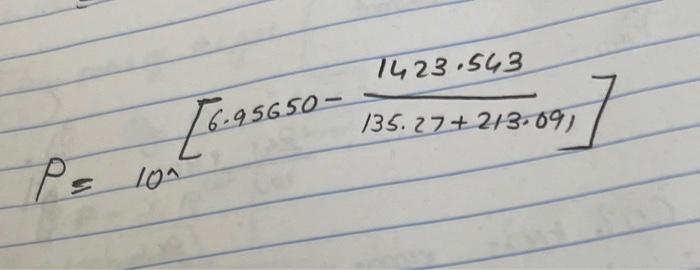 P = 10^ [6.95650 - 1423.543 / 135.27 + 213.091]